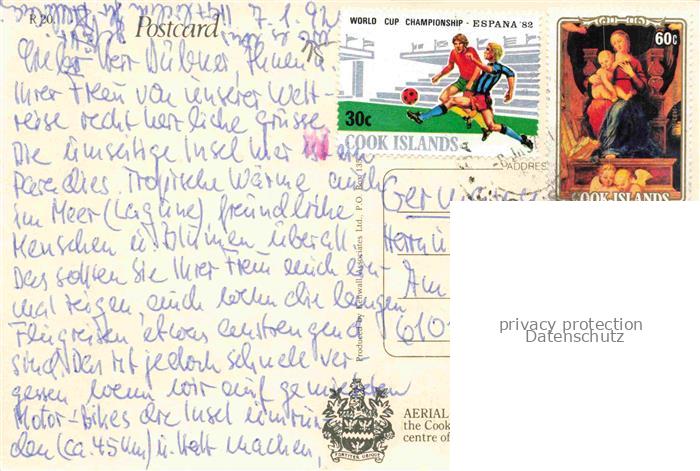 7.1.92
R 20.
Postcard
Lieber Herr Dübner, Ihnen u.
Ihrer Frau von unserer Welt-
reise recht herzliche Grüsse
Die umseitige Insel hier ist ein
Paradies. Tropische Wärme auch
im Meer (Lagune) freundliche
Menschen u. Blumen überall.
Das sollten Sie Ihrer Frau auch ein-
mal zeigen, auch wenn die langen
Flugreisen etwas anstrengend
sind. Das ist jedoch schnell ver-
gessen wenn wir auf gemieteten
Motor-Bikes die Insel umrun
den (ca. 45 km) u. Halt machen,
WORLD CUP CHAMPIONSHIP - ESPANA '82
30c
COOK ISLANDS
60c
COOK ISLANDS
ADDRESS
Germany
Herrn u
Am
610
Produced by Associates Ltd., P.O. Box 135
AERIAL
the Cook
centre of
FORTITER UBIQUE
privacy protection
Datenschutz